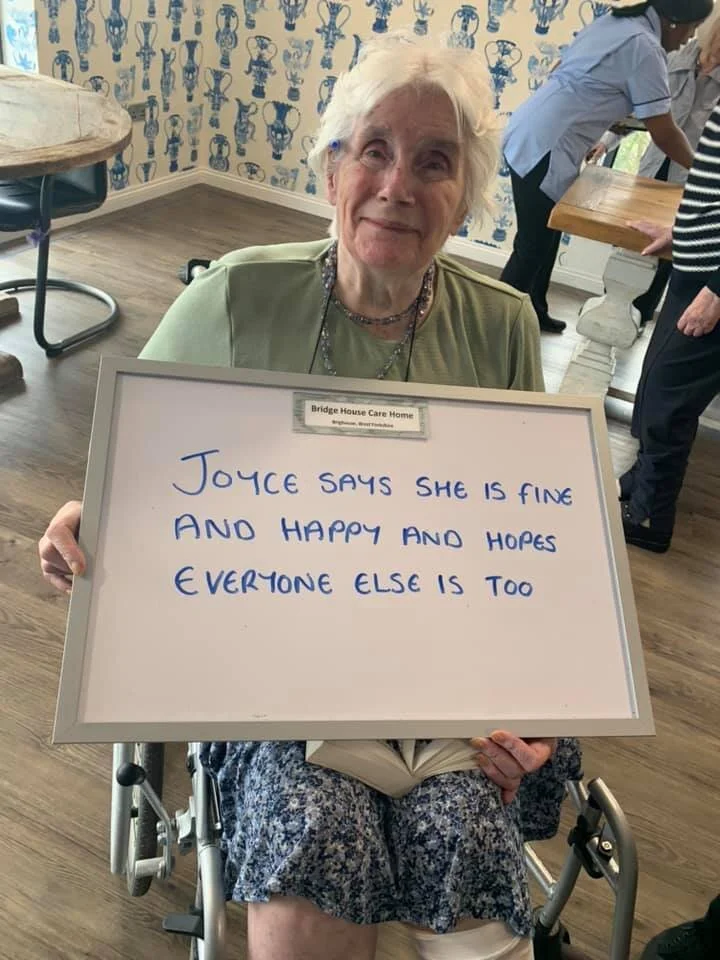 Bridge House Care Home
Brighouse, West Yorkshire
JOYCE SAYS SHE IS FINE
AND HAPPY AND HOPES
EVERYONE ELSE IS TOO